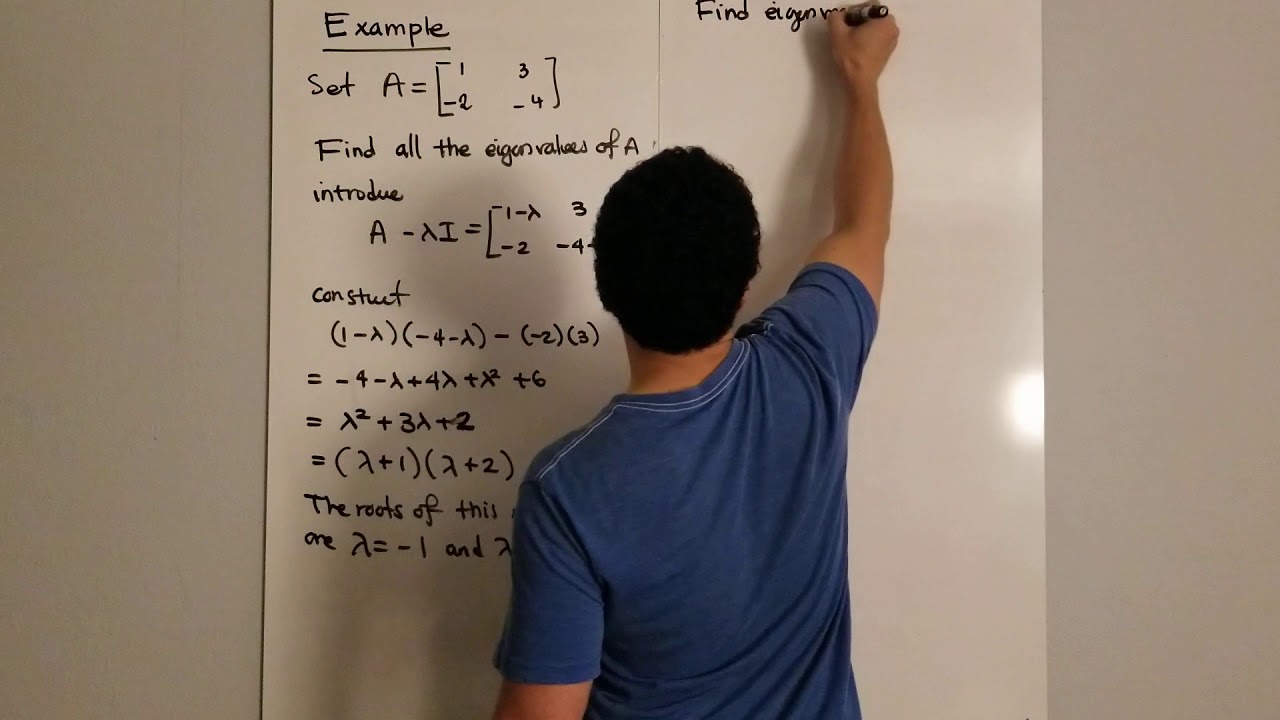 Example
Set A = [ 1 3
-2 -4 ]
Find all the eigenvalues of A
introdue
A - λI = [ 1-λ 3
-2 -4-
constuct
(1-λ)(-4-λ) - (-2)(3)
= -4-λ+4λ+λ² +6
= λ² + 3λ+2
= (λ+1)(λ+2)
The roots of this
are λ = -1 and λ
Find